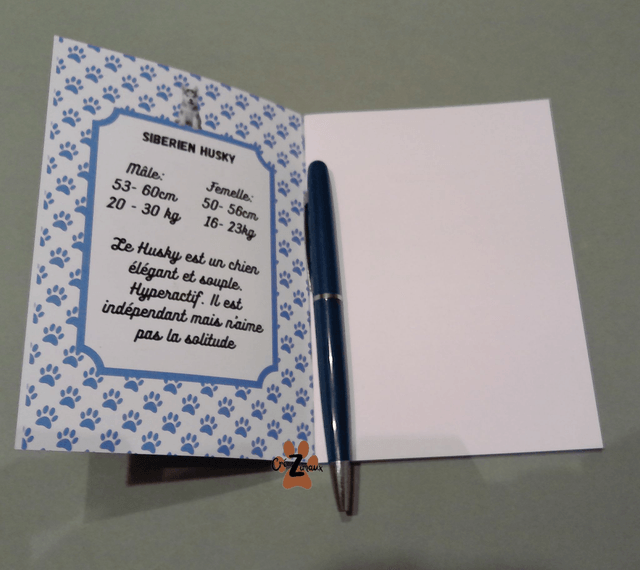 SIBERIEN HUSKY
Mâle:
53- 60cm
20 - 30 kg
Femelle:
50- 56cm
16- 23kg
Le Husky est un chien
élégant et souple.
Hyperactif. Il est
indépendant mais n'aime
pas la solitude